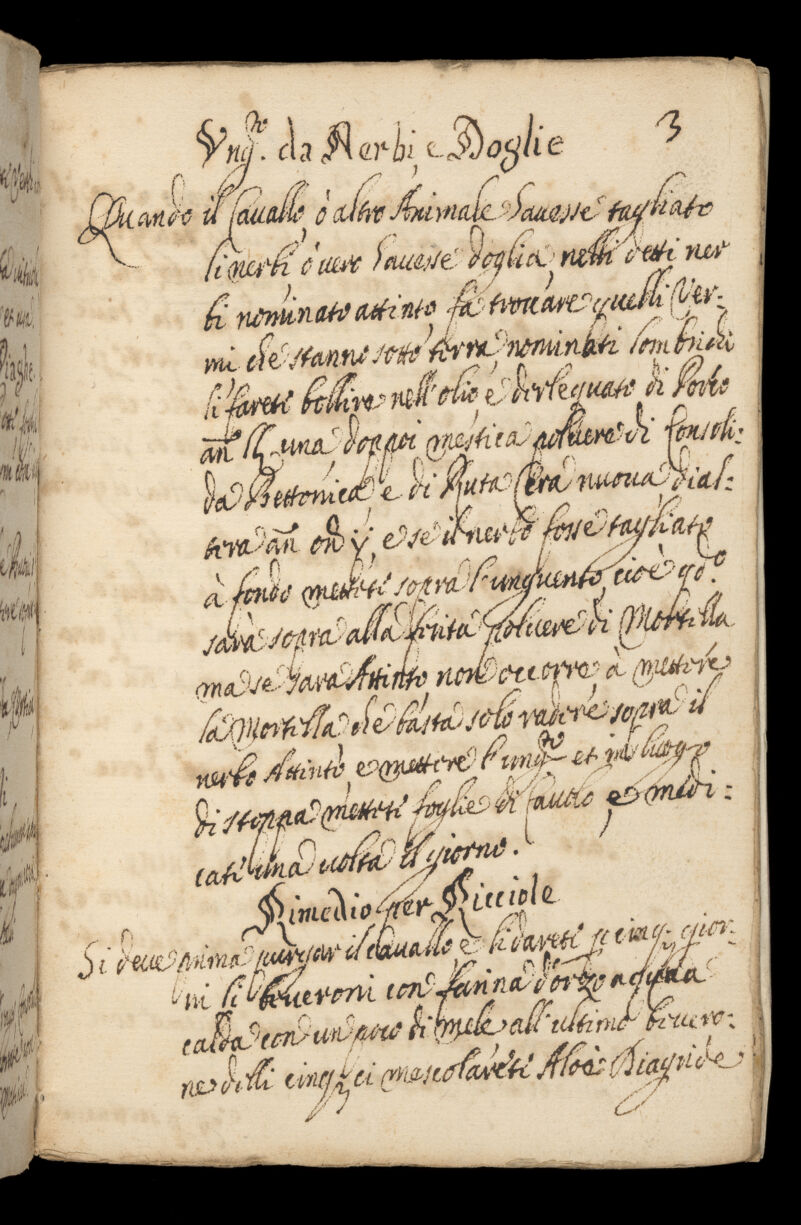 3
Vng.to da Nerbi, e Doglie
Quando il Cavallo, ó altro Animale havesse tagliato
li nerbi, ó vero havesse doglia, nelli detti ner
bi nominato attinto, fà trovare quelli Ver-
mi che stanno sotto terra, nominati lombrichi
li fareti bollire nell'olio, e derleguato di Porco
an̄ ll una, doppoi mestica polvere di Consoli:
da Bettonica, e di Ruta Cera nuova dial:
tera an̄ on̄ ij, e se il nerbo fosse tagliato
à fondo metteti sopra l'unguento, cioè qdo.
sarà sopra alla ferita polvere di Mortilla
ma se sara Attinto non occorre, à mettere
la Mortilla che basta solo radere sopra il
nerbo Attinto, e mettere l'ung.to et in luogo
di stoppa metteti foglie di Cavolo, e medi:
cati una volta il giorno.
Rimedio per Ricciole
Si deve prima purgar il Cavallo, e li dareti p cinq; gior:
ni li beveroni con farina d'orzo aqua
calda con un poco di mele all'ultimo bevero:
ne delli cinq; ci mescolareti Aloè Diagride